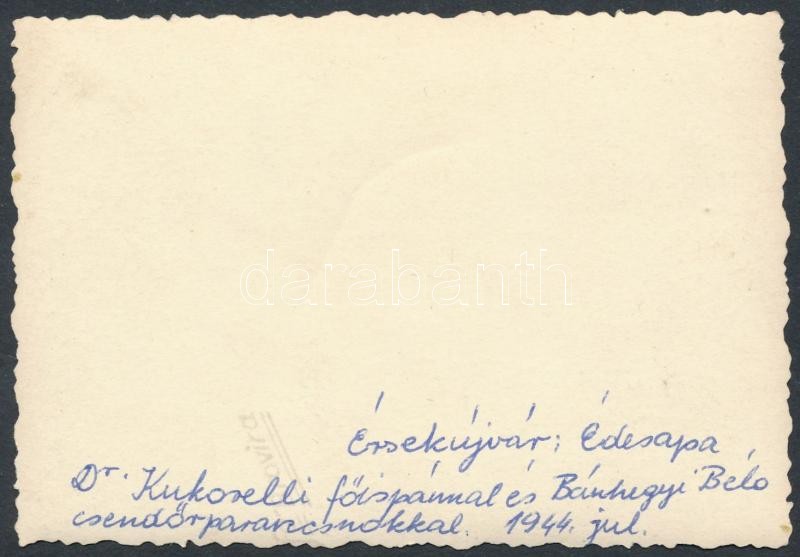 darabanth
Érsekújvár; Édesapa
Dr. Kukorelli főispánnal és Bánhegyi Béla
csendőrparancsnokkal. 1944. jul.